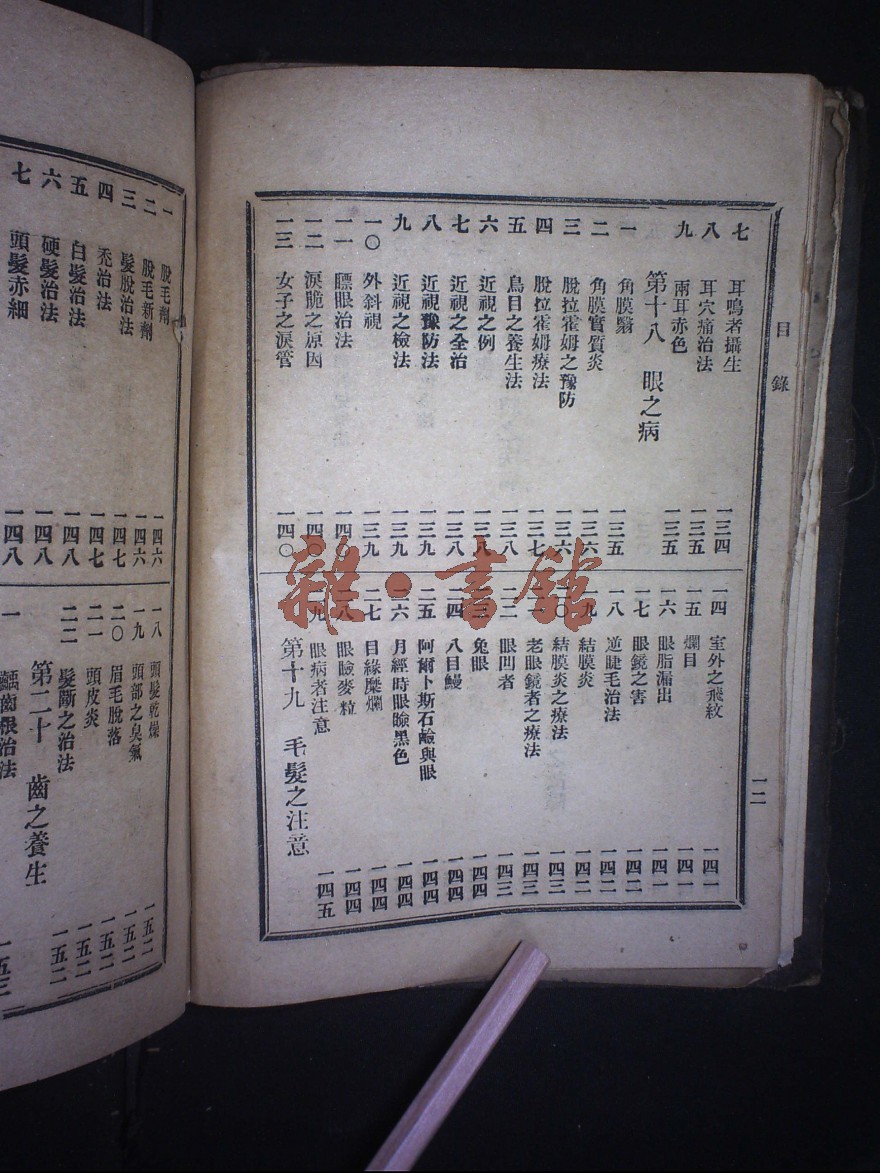 目錄
七 耳鳴者攝生 一三四
八 耳穴痛治法 一三五
九 兩耳赤色 一三五
第十八 眼之病
一 角膜翳 一三五
二 角膜實質炎 一三六
三 脫拉霍姆之豫防 一三六
四 脫拉霍姆療法 一三七
五 鳥目之養生法 一三八
六 近視之例 一三八
七 近視之全治 一三八
八 近視豫防法 一三九
九 近視之檢法 一三九
一〇 外斜視 一三九
一一 瞟眼治法 一四〇
一二 淚脆之原因 一四〇
一三 女子之淚管 一四〇
一四 室外之飛紋 一四一
一五 爛目 一四一
一六 眼脂漏出 一四一
一七 眼鏡之害 一四二
一八 逆睫毛治法 一四二
一九 結膜炎 一四二
二〇 結膜炎之療法 一四三
二一 老眼鏡者之療法 一四三
二二 眼凹者 一四三
二三 兔眼 一四四
二四 八目鰻 一四四
二五 阿爾卜斯石鹼與眼 一四四
二六 月經時眼瞼黑色 一四四
二七 目緣糜爛 一四四
二八 眼瞼麥粒 一四四
二九 眼病者注意 一四五
第十九 毛髮之注意
一二
一 脫毛劑 一四六
二 脫毛新劑 一四六
三 髮脫治法 一四七
四 禿治法 一四七
五 白髮治法 一四八
六 硬髮治法 一四八
七 頭髮赤細 一四八
一八 頭髮乾燥 一五二
一九 頭部之臭氣 一五二
二〇 眉毛脫落 一五二
二一 頭皮炎 一五二
二二 髮斷之治法 一五二
第二十 齒之養生
一 齲齒根治法 一五三
雜·書館